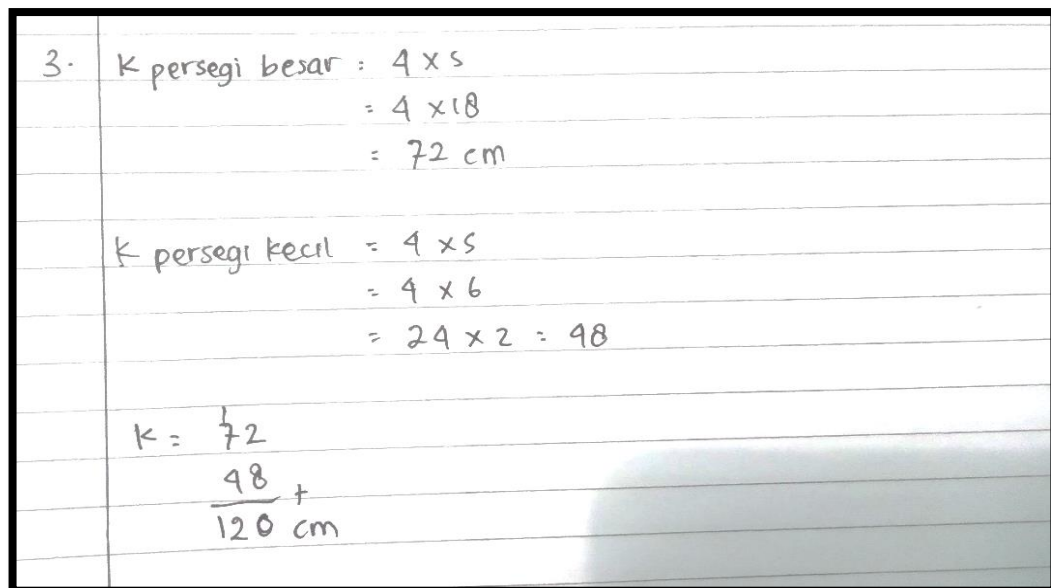 3. K persegi besar : 4 x s
= 4 x 18
= 72 cm
K persegi kecil = 4 x s
= 4 x 6
= 24 x 2 = 48
K = 72
1
48 +
120 cm